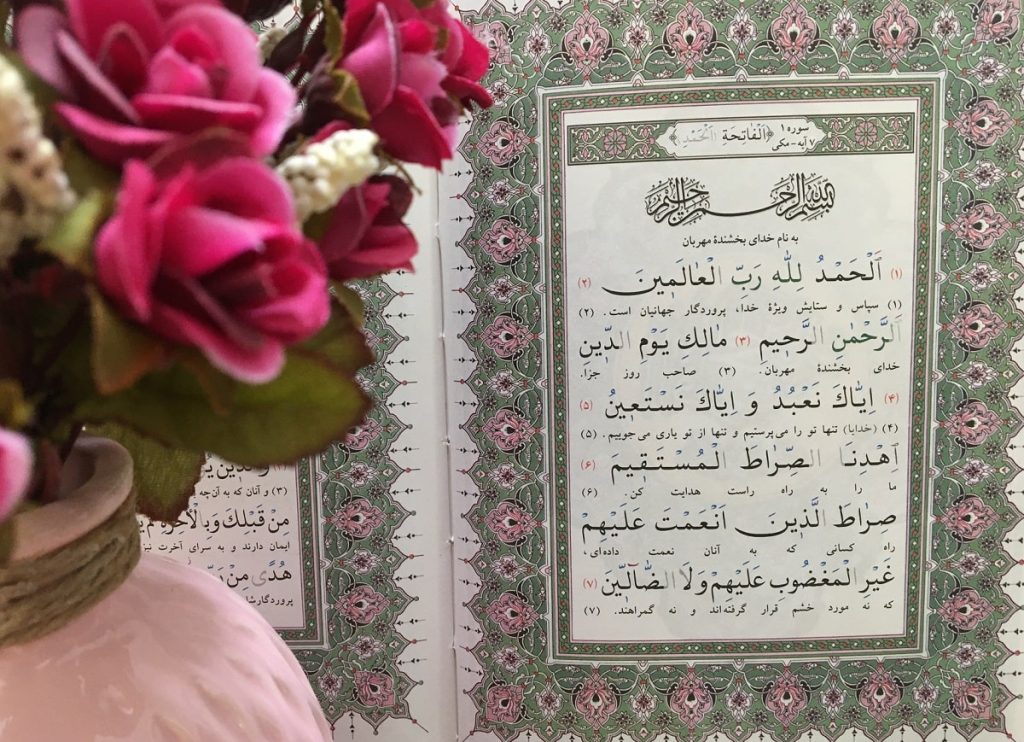 سوره ۱
﴿اَلْفاتِحَة اَلْحَمْد﴾
۷ آیه - مکی
بِسْمِ اللّٰهِ الرَّحْمٰنِ الرَّحيمِ
به نام خدای بخشندهٔ مهربان
(۱) اَلْحَمْدُ لِلّٰهِ رَبِّ الْعٰالَمينَ (۲)
(۱) سپاس و ستایش ویژهٔ خدا، پروردگار جهانیان است. (۲)
اَلرَّحْمٰنِ الرَّحيمِ (۳) مٰالِكِ يَوْمِ الدّينِ
خدای بخشندهٔ مهربان. (۳) صاحب روز جزا.
(۴) اِيّٰاكَ نَعْبُدُ وَ اِيّٰاكَ نَسْتَعينُ (۵)
(۴) (خدایا) تنها تو را می‌پرستیم و تنها از تو یاری می‌جوییم. (۵)
اِهْدِنَا الصِّرٰاطَ الْمُسْتَقيمَ (۶)
ما را به راه راست هدایت کن. (۶)
صِرٰاطَ الَّذينَ اَنْعَمْتَ عَلَيْهِمْ
راه کسانی که به آنان نعمت داده‌ای،
غَيْرِ الْمَغْضُوبِ عَلَيْهِمْ وَلَا الضّٰالّينَ (۷)
که نه مورد خشم قرار گرفته‌اند و نه گمراهند. (۷)
وَالَّذينَ
(۳) و آنان که به آن‌چه
مِنْ قَبْلِكَ وَبِالْاٰخِرَةِ
ایمان دارند و به سرای آخرت نیز
هُدًى مِنْ